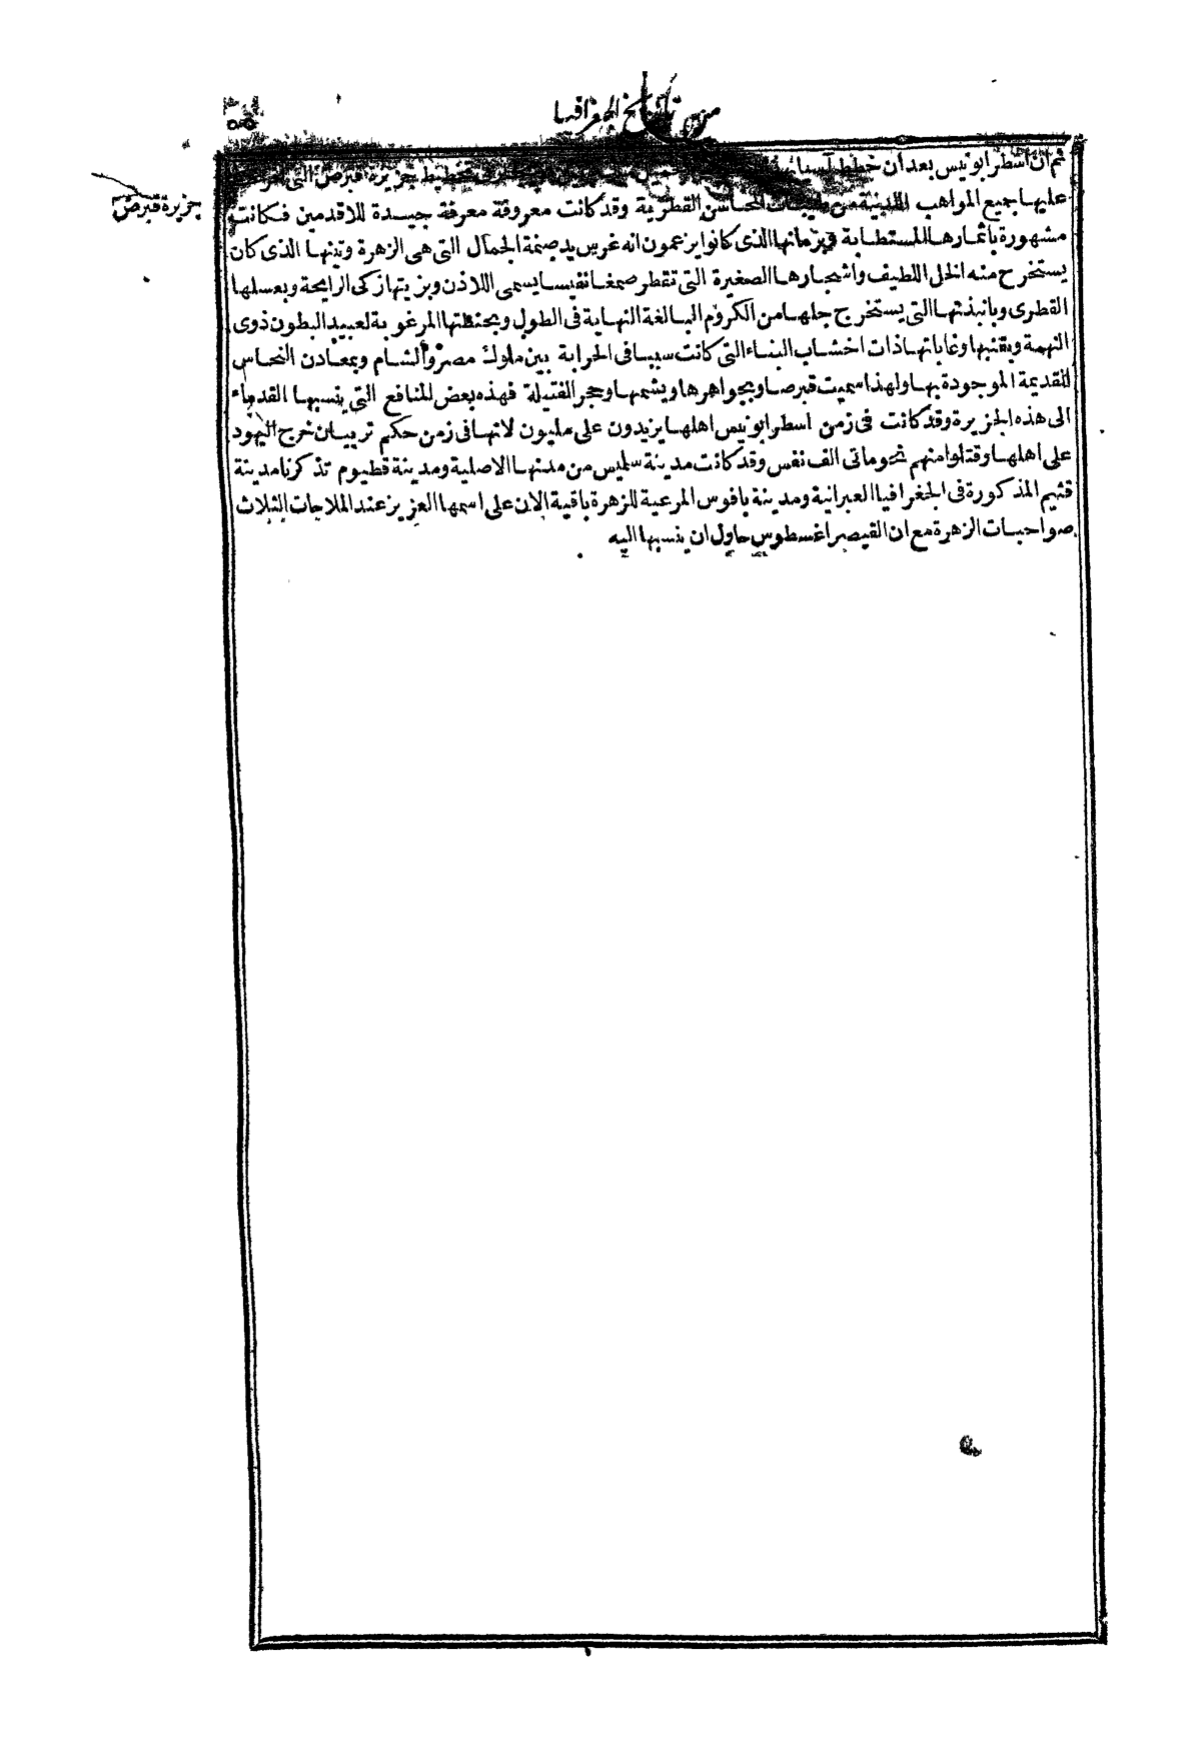 من تاريخ الجغرافيا
ثم ان اسطرابونيس بعد ان خطط تخطيط جزيرة قبرص التى
جزيرة قبرص
عليها جميع المواهب المحاسن القطرية وقد كانت معروفة معرفة جيدة للاقدمين فكانت
مشهورة باثمارها المستطابة وبرمانها الذى كانوا يزعمون انه غرس يد صنمة الجمال التى هى الزهرة وتينها الذى كان
يستخرج منه الخل اللطيف واشجارها الصغيرة التى تقطر صمغا نفيسا يسمى اللاذن وبزيتها زكى الرايحة وبعسلها
القطرى وبانبذتها التى يستخرج جلها من الكروم البالغة النهاية فى الطول وبحنطتها المرغوبة لعبيد البطون ذوى
النهمة وبقنبها وغاباتها ذات اخشاب البناء التى كانت سببا فى الحرابة بين ملوك مصر والشام وبمعادن النحاس
القديمة الموجودة بها ولهذا سميت قبرصا وبجواهرها وبشمها وحجر الفتيلة فهذه بعض المنافع التى ينسبها القدماء
الى هذه الجزيرة وقد كانت فى زمن اسطرابونيس اهلها يزيدون على مليون لانها فى زمن حكم تريبان خرج اليهود
على اهلها وقتلوا منهم نحو مائى الف نفس وقد كانت مدينة سلميس من مدنها الاصلية ومدينة قطيوم تذكرنا مدينة
قثيم المذكورة فى الجغرافيا العبرانية ومدينة بافوس المرعية للزهرة باقية الان على اسمها العزيز عند الملاجات الثلاث
صواحبات الزهرة مع ان القيصر اغسطوس حاول ان ينسبها اليه